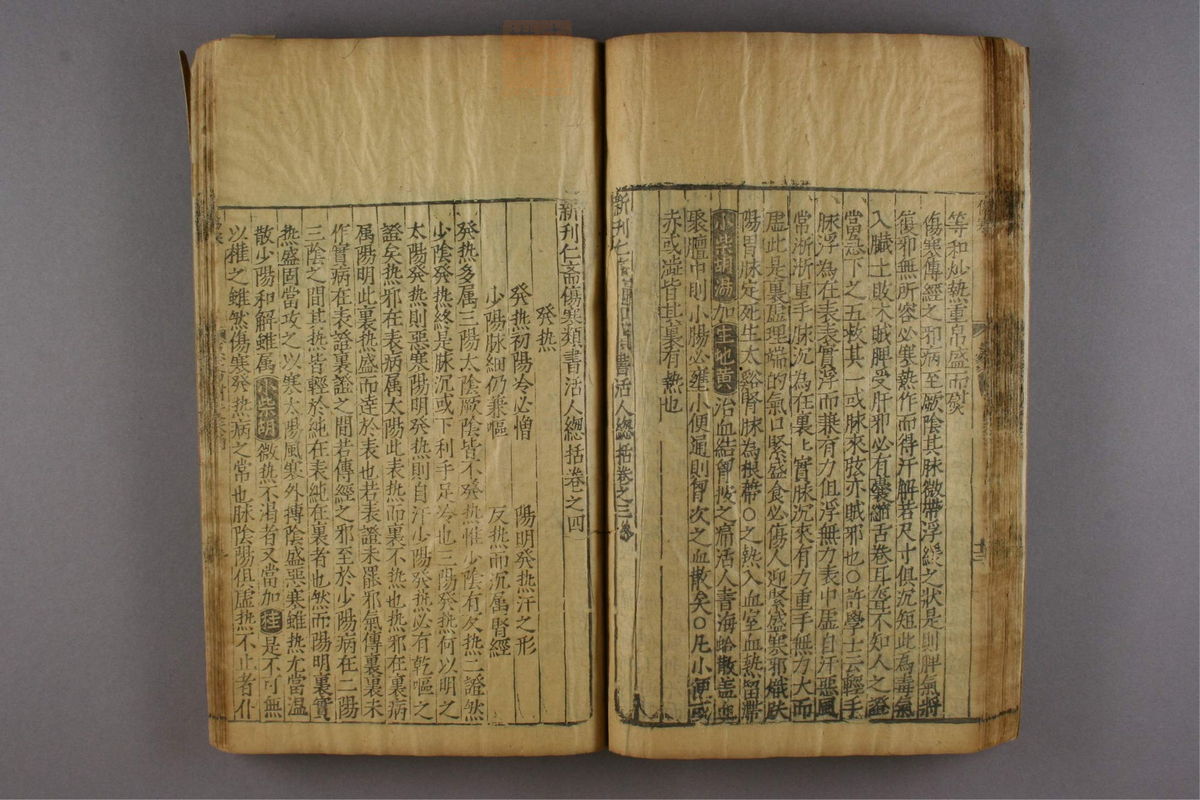 等和灿熱重帛盛而㷫
傷寒傳經之邪病至厥陰其脉微帶浮緩之狀是則脾氣將
復邪無所容必寒熱作而得汗解若尺寸俱沉短此為毒氣
入臟土敗木賊脾受肝邪必有囊縮舌卷耳聾不知人之證
當急下之五救其一或脉來弦亦賊邪也○許學士云輕手
脉浮為在表表實浮而兼有力但浮無力表中虛自汗惡風
常淅淅重手脉沉為在裏裏實脉沉來有力重手無力大而
虛此是裏虛理端的氣口緊盛食必傷人迎緊盛寒邪熾趺
陽胃脉定死生太谿腎脉為根蒂○之熱入血室血熱留滯
小柴胡湯加生地黃治血結胷按之痛活人書海蛤散盖血
聚膻中則小腸必壅小便通則胷次之血散矣○凡小便或
赤或澁皆其裏有熱也
新刊仁齋傷寒類書活人總括卷之三
新刊仁斋傷寒類書活人總括卷之四
癸热
癸热初陽冷必憎 陽明癸热汗之形
少陽脉細仍兼嘔 反热而沉属腎經
癸热多属三陽太陰厥陰皆不癸热惟少陰有癸热二證然
少陰癸热終是脉沉或下利手足冷也三陽癸热何以明之
太陽癸热則惡寒陽明癸热則自汗少陽癸热必有乾嘔之
證矣热邪在表病属太陽此表热而裏不热也热邪在裏病
属陽明此裏热盛而達於表也若表證未罷邪氣傳裏裏未
作實病在表證裏證之間若傳經之邪至於少陽病在二陽
三陰之間其热皆輕於純在表純在裏者也然而陽明裏實
热盛固當攻之以寒太陽風寒外搏陰盛惡寒雖热尤當温
散少陽和解雖属小柴胡微热不渴者又當加桂是不可無
以權之雖然傷寒癸热病之常也脉陰陽俱虛热不止者仆